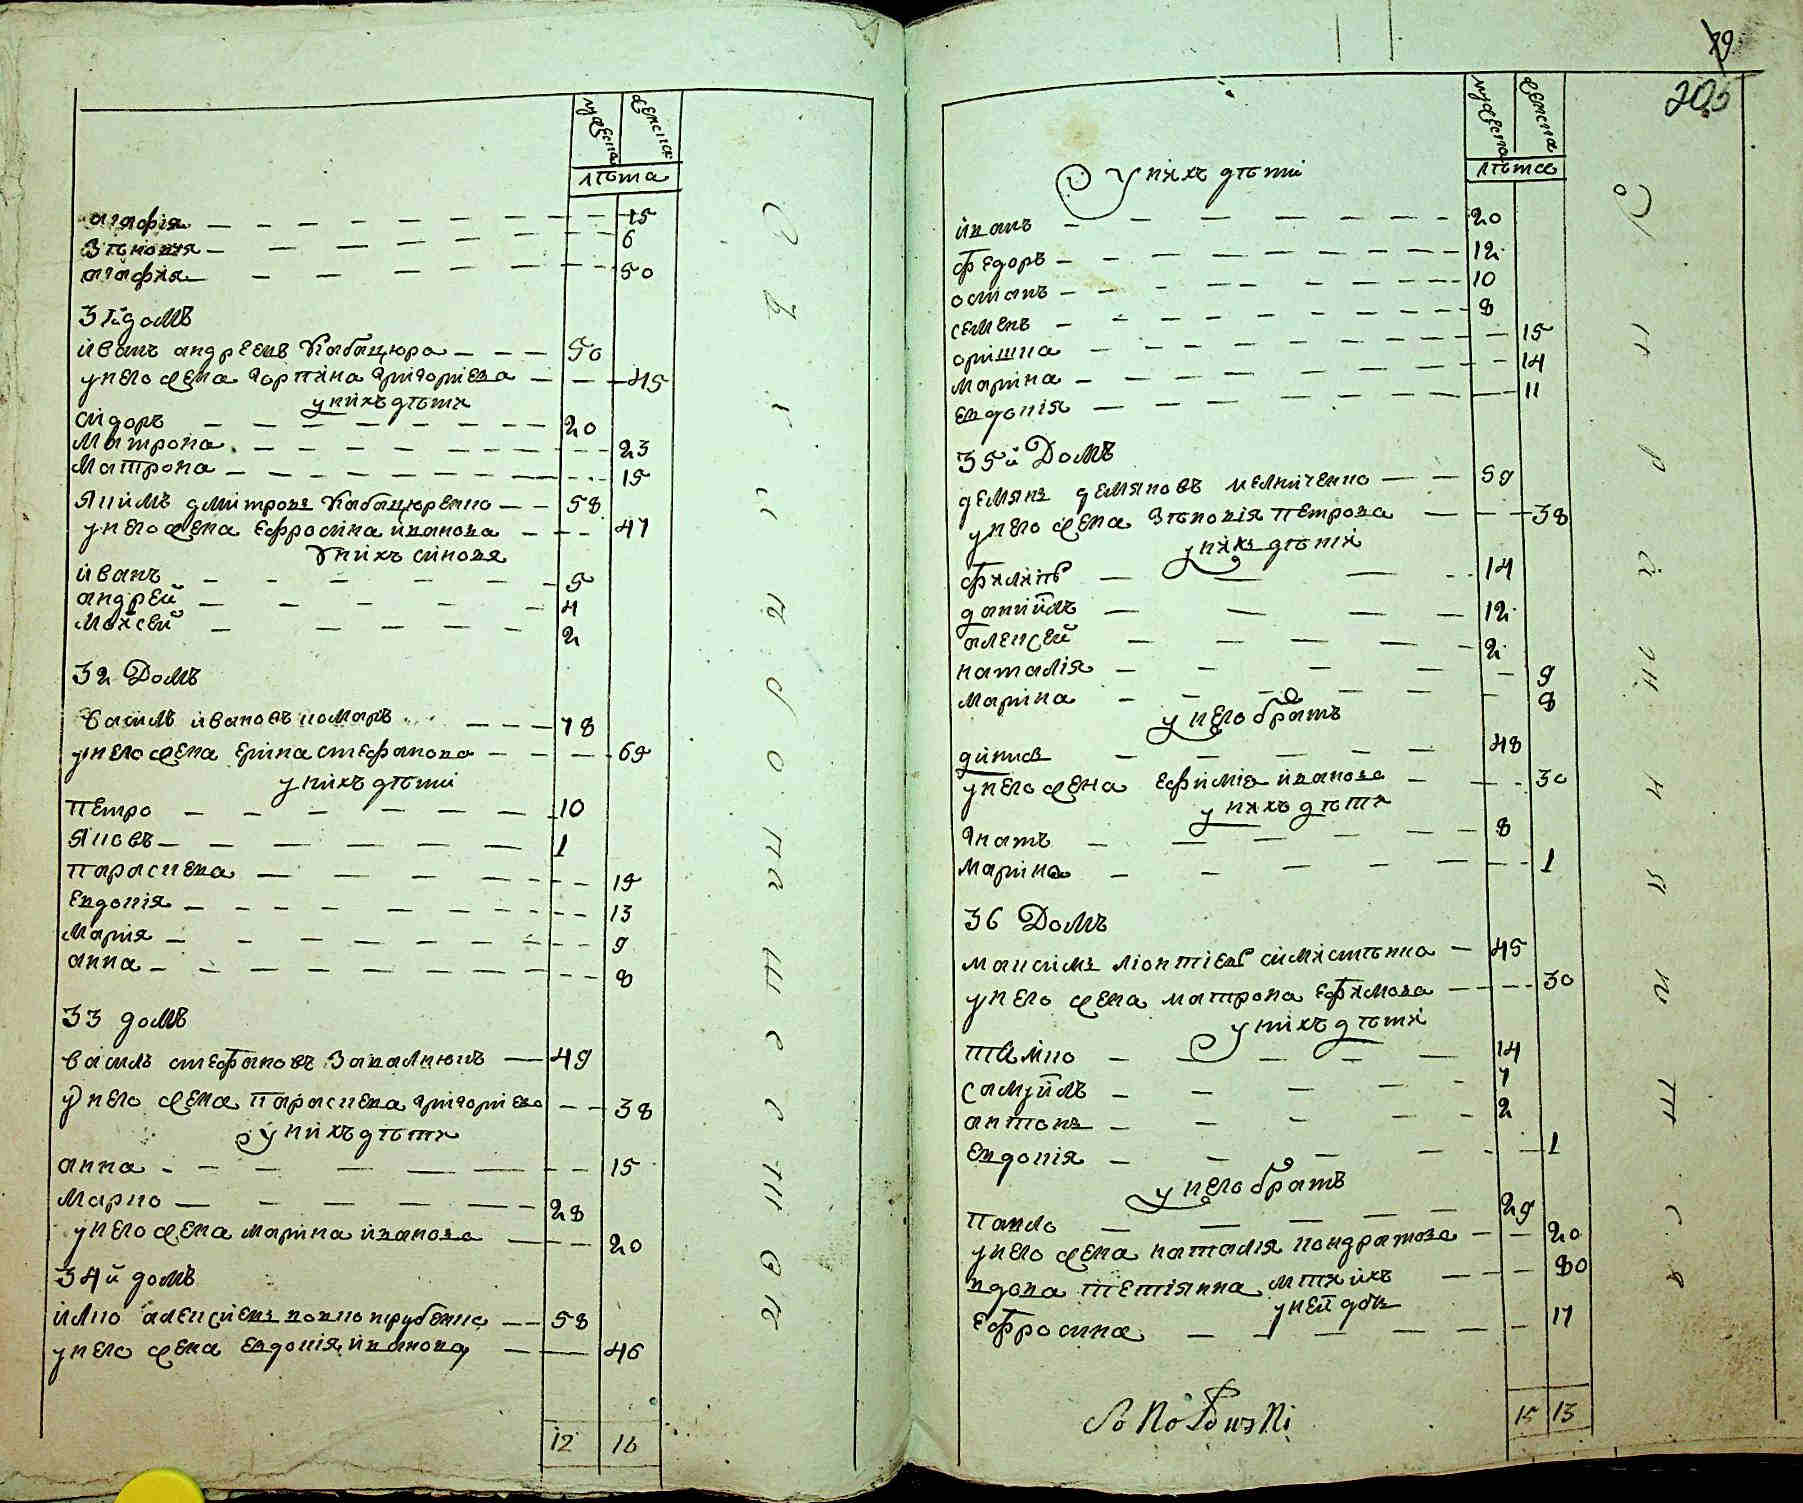 мужеска
женска
лѣта
агафія 15
Зѣновия 6
агафия 50
31й домъ
иванъ андреевъ Кабацюра 50
у него жена горпина григориева 45
у нихъ дѣти
сидоръ 20
Матрона 23
Матрона 15
Якимъ дмитровъ Кабацюренко 58
у него жена ефросина иванова 47
у нихъ синовя
иванъ 5
андрей 4
Мойсей 2
32 Домъ
василь ивановъ комаръ 78
у него жена ерина стефанова 69
у нихъ дѣти
петро 10
Яковъ 1
параскева 19
Евдокія 13
Мария 9
анна 8
33 домъ
василь стефановъ Закалнюкъ 49
у него жена параскева григориева 38
у нихъ дѣти
анна 15
Марко 28
у него жена марина иванова 20
34й домъ
илко алексиевъ 58
у него жена Евдокія иванова 46
12 16
79
205
мужеска
женска
лѣта
У нихъ дѣти
иванъ 20
федоръ 12
остапъ 10
семенъ 8
оришка 15
Марина 14
Евдокія 11
35й Домъ
демянъ демяновъ мелниченко 59
у него жена Зѣновія петрова 38
у нихъ дѣти
филипъ 14
даниилъ 12
алексей 2
наталія 9
Марина 8
у него братъ
динисъ 48
у него жена ефимія иванова 30
у нихъ дѣти
гнатъ 8
Марина 1
36 Домъ
максимъ ліонтіевъ 45
у него жена матрона ефимова 30
у нихъ дѣти
тимко 14
самуилъ 7
антонъ 2
евдокія 1
у него братъ
павло 29
у него жена наталия кондратова 20
вдова тетіянна мти ихъ 80
у ней дочь
ефросина 17
SoKoŁowsKi
15 13